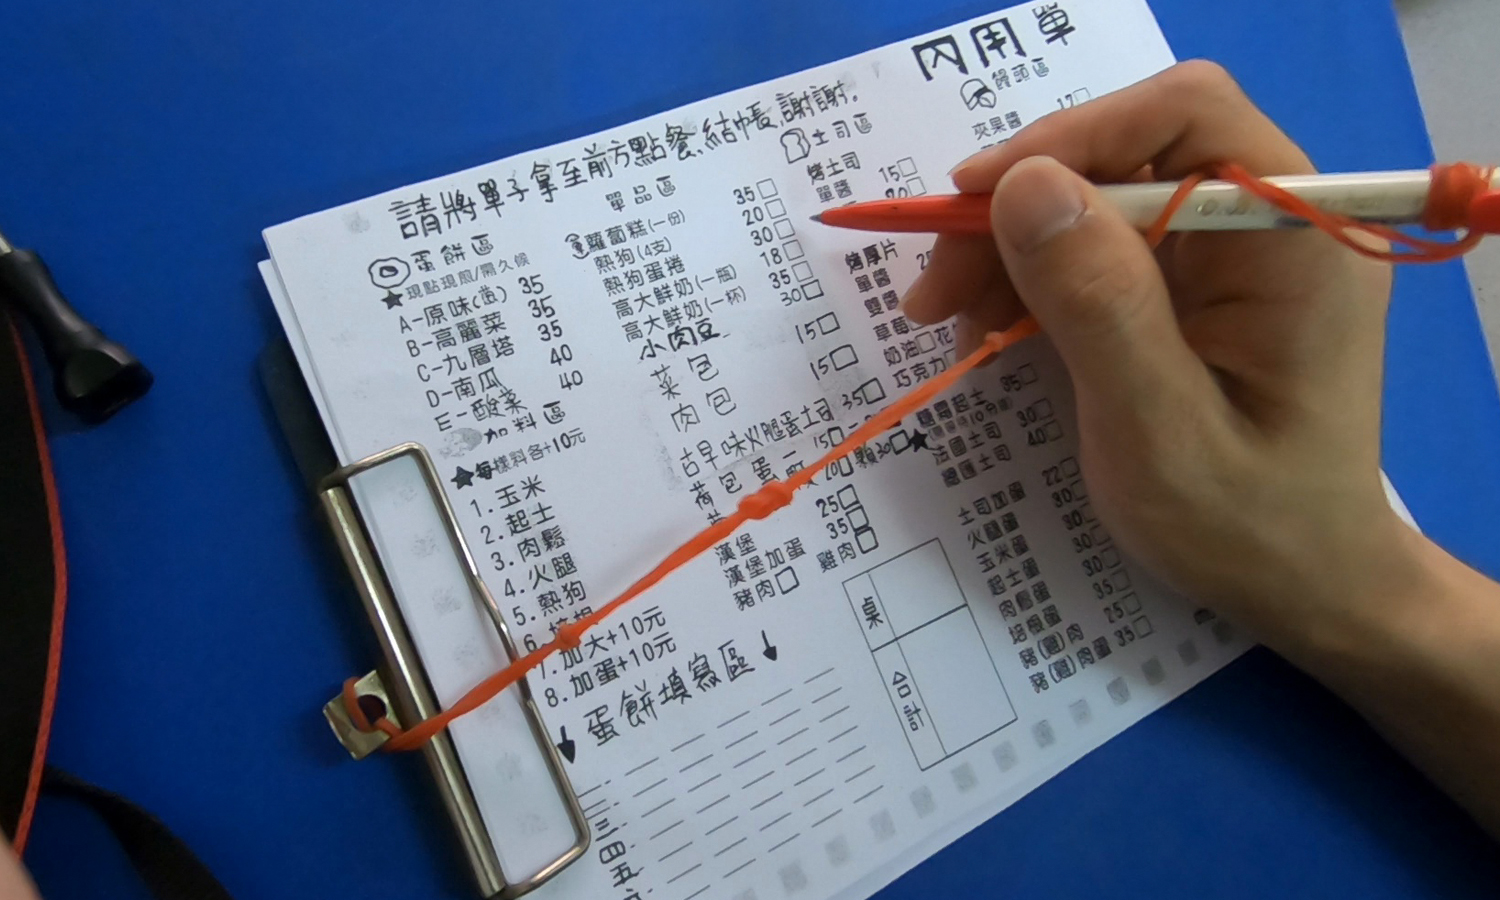 內用單
請將單子拿至前方點餐.結帳.謝謝.
蛋餅區
★現點現煎/需久候
A-原味(蔥) 35
B-高麗菜 35
C-九層塔 35
D-南瓜 40
E-酸菜 40
加料區
★每樣料各+10元
1. 玉米
2. 起士
3. 肉鬆
4. 火腿
5. 熱狗
6.
7. 加大+10元
8. 加蛋+10元
↓ 蛋餅填寫區 ↓
三
四
五
單品區
蘿蔔糕(一份) 35□
熱狗(4支) 20□
熱狗蛋捲 30□
高大鮮奶(一瓶) 18□
高大鮮奶(一杯) 35□
小肉豆 30□
菜包 15□
肉包 15□
古早味火腿蛋土司 35□
荷包蛋一 15□
20□ 顆30□
漢堡 25□
漢堡加蛋 35□
豬肉□ 雞肉□
桌
合計
土司區
烤土司
單醬 15□
20□
烤厚片
單醬 25
雙醬
草莓□
奶油□花
巧克力□
起士 35□
法國土司 30□
總匯土司 40□
土司加蛋 22□
火腿蛋 30□
玉米蛋 30□
起士蛋 30□
肉鬆蛋 30□
培根蛋 35□
豬(雞)肉 25□
豬(雞)肉蛋 35□
饅頭區
夾果醬 17□